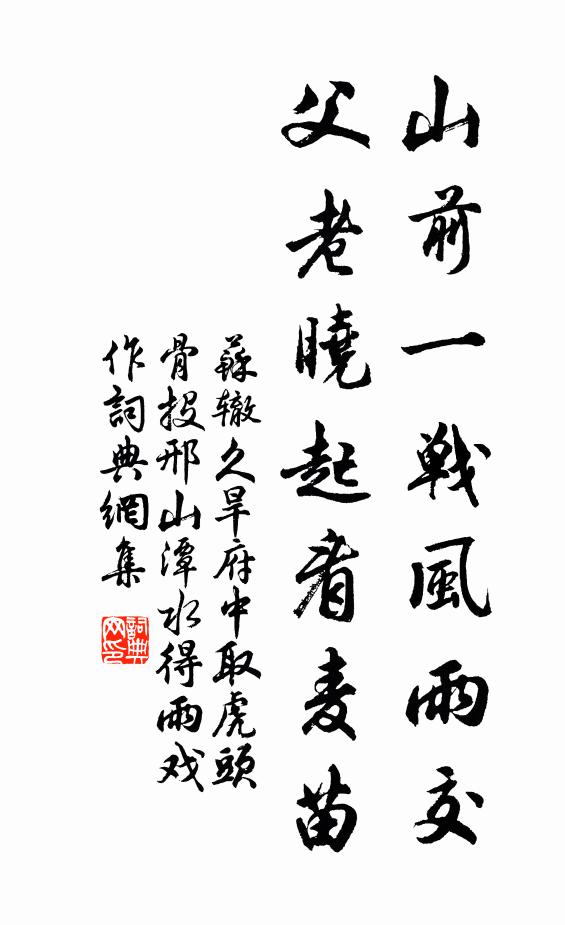 山前一戰風雨交
父老曉起看麦苗
蘇辙久旱府中取虎頭
骨投邢山潭水得雨戏
作詞典網集
詞典
网印